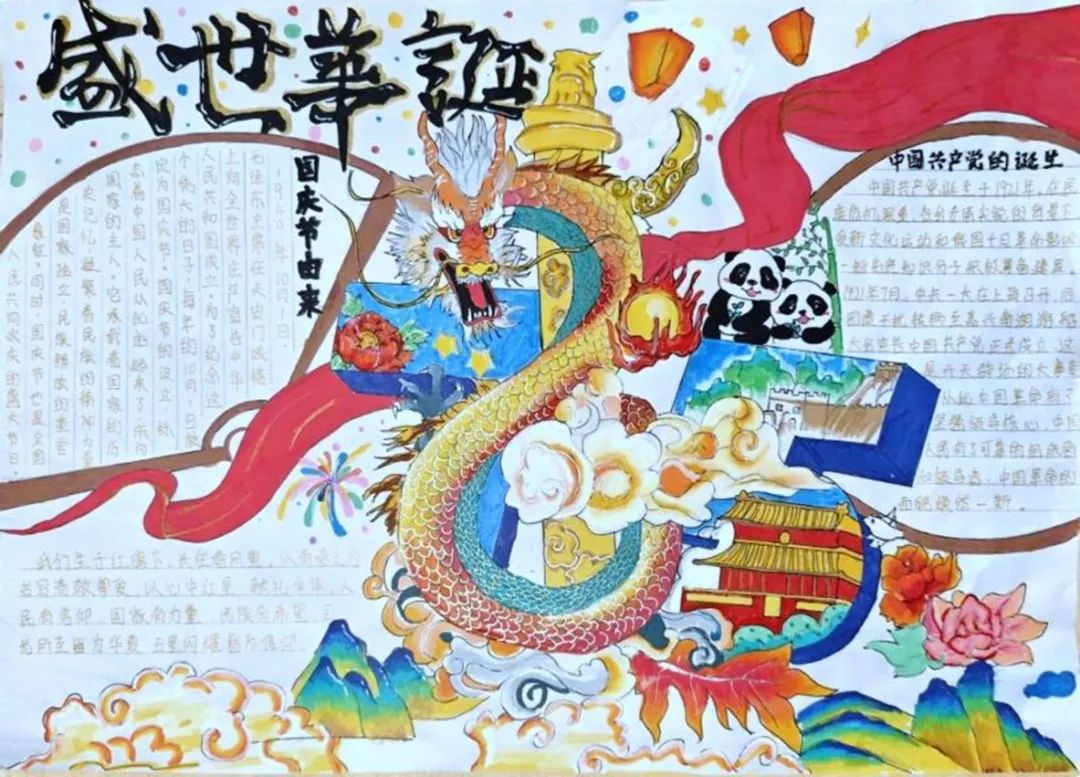 盛世華誕
国庆节由来
1949年10月1日
毛泽东主席在天安门城楼
上向全世界庄严宣告中华
人民共和国成立。为了纪念这
个伟大的日子,每年的10月1日被
定为国庆节。国庆节的设立,标
志着中国人民从此站起来了,成为
国家的主人。它承载着国家的历
史记忆,凝聚着民族的精神力量
是国家独立、民族解放的重要
象征,同时,国庆节也是全国
人民共同欢庆的盛大节日。
中国共产党的诞生
中国共产党诞生于1921年,在民
族危机深重,的背景下
受新文化运动和俄国十月革命影响
一批先进知识分子积极筹备建党。
1921年7月,中共一大在上海召开,后
因遭干扰转移至嘉兴南湖游船
大会宣告中国共产党正式成立,这
是开天辟地的大事变
从此中国革命有了
坚强领导核心,中国
人民有了可靠的组织者
和领导者,中国革命的
面貌焕然一新。
我们生于红旗下,长在春风里,
以心中红星,献礼华年,人
民有信仰,国家有力量,民族有希望,目
光所至皆为华夏,五星闪耀皆为信仰。